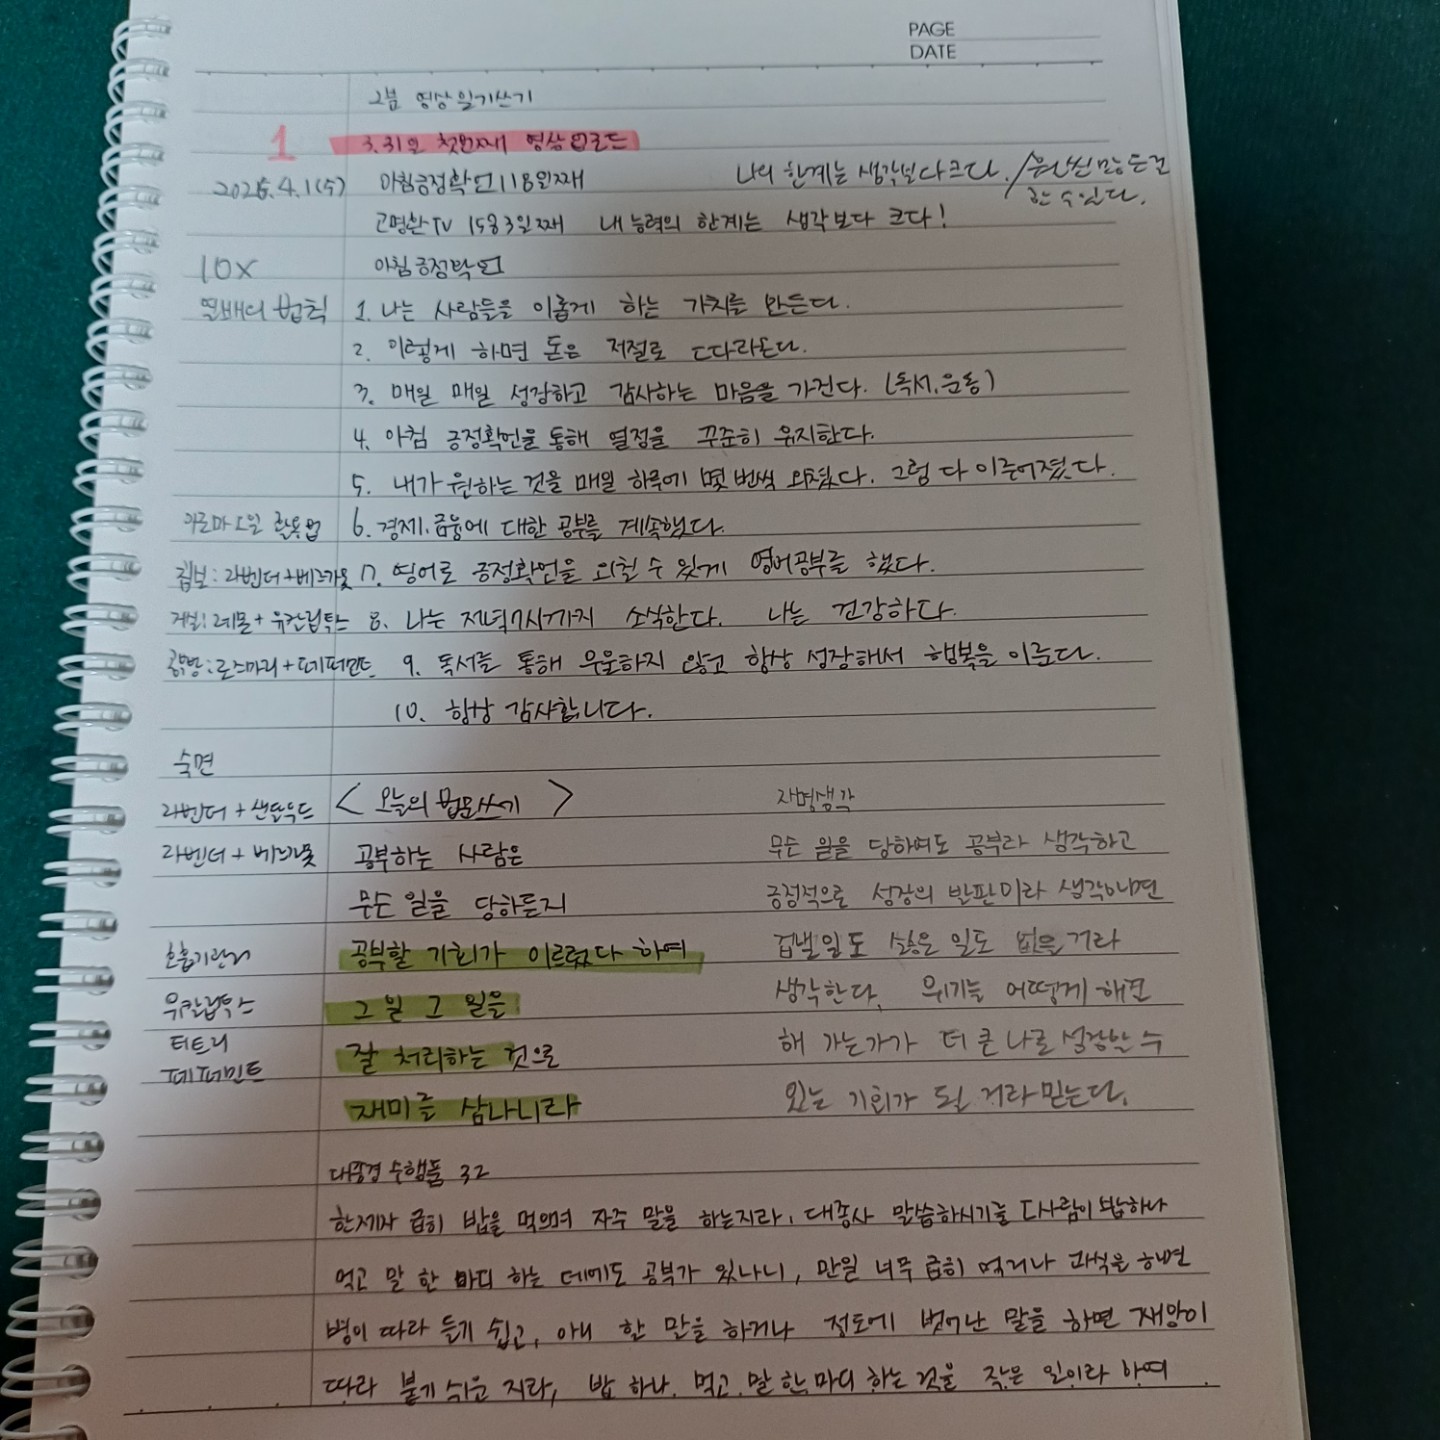 PAGE
DATE
2분 영상일기쓰기
1 3.31일 첫번째 영상업로드
2026.4.1(수) 아침긍정확언118일째 나의 한계는 생각보다크다. / 훨씬 많은걸
할 수 있다.
고명환TV 1583일째 내 능력의 한계는 생각보다 크다!
10X 아침긍정확언
열배의 법칙 1. 나는 사람들을 이롭게 하는 가치를 만든다.
2. 이렇게 하면 돈은 저절로 따라온다.
3. 매일 매일 성장하고 감사하는 마음을 가진다. (독서, 운동)
4. 아침 긍정확언을 통해 열정을 꾸준히 유지한다.
5. 내가 원하는 것을 매일 하루에 몇 번씩 외쳤다. 그럼 다 이루어졌다.
아로마오일 활용법 6. 경제, 금융에 대한 공부를 계속했다.
: 라벤더+베르가못 7. 영어로 긍정확언을 외칠 수 있게 영어공부를 했다.
거실: 레몬+유칼립투스 8. 나는 저녁7시까지 소식한다. 나는 건강하다.
: 로즈마리+페퍼민트 9. 독서를 통해 우울하지 않고 항상 성장해서 행복을 이룬다.
10. 항상 감사합니다.
숙면
라벤더 + 샌달우드 < 오늘의 법문쓰기 > 자명생각
라벤더 + 베르가못 공부하는 사람은 무슨 일을 당하여도 공부라 생각하고
무슨 일을 당하든지 긍정적으로 성장의 발판이라 생각하면
호흡기관리 공부할 기회가 이르렀다 하여 겁낼일도 싫은 일도 없을 거라
유칼립투스 그 일 그 일을 생각한다. 위기를 어떻게 해결
티트리 잘 처리하는 것으로 해 가는가가 더 큰 나로 성장할 수
페퍼민트
재미를 삼나니라 있는 기회가 될 거라 믿는다.
대종경 수행품 32
한제자 급히 밥을 먹으며 자주 말을 하는지라, 대종사 말씀하시기를 「사람이 밥하나
먹고 말 한 마디 하는 데에도 공부가 있나니, 만일 너무 급히 먹거나 과식을 하면
병이 따라 들기 쉽고, 아니 할 말을 하거나 정도에 벗어난 말을 하면 재앙이
따라 붙기 쉬운 지라, 밥 하나 먹고 말 한 마디 하는 것을 작은 일이라 하여